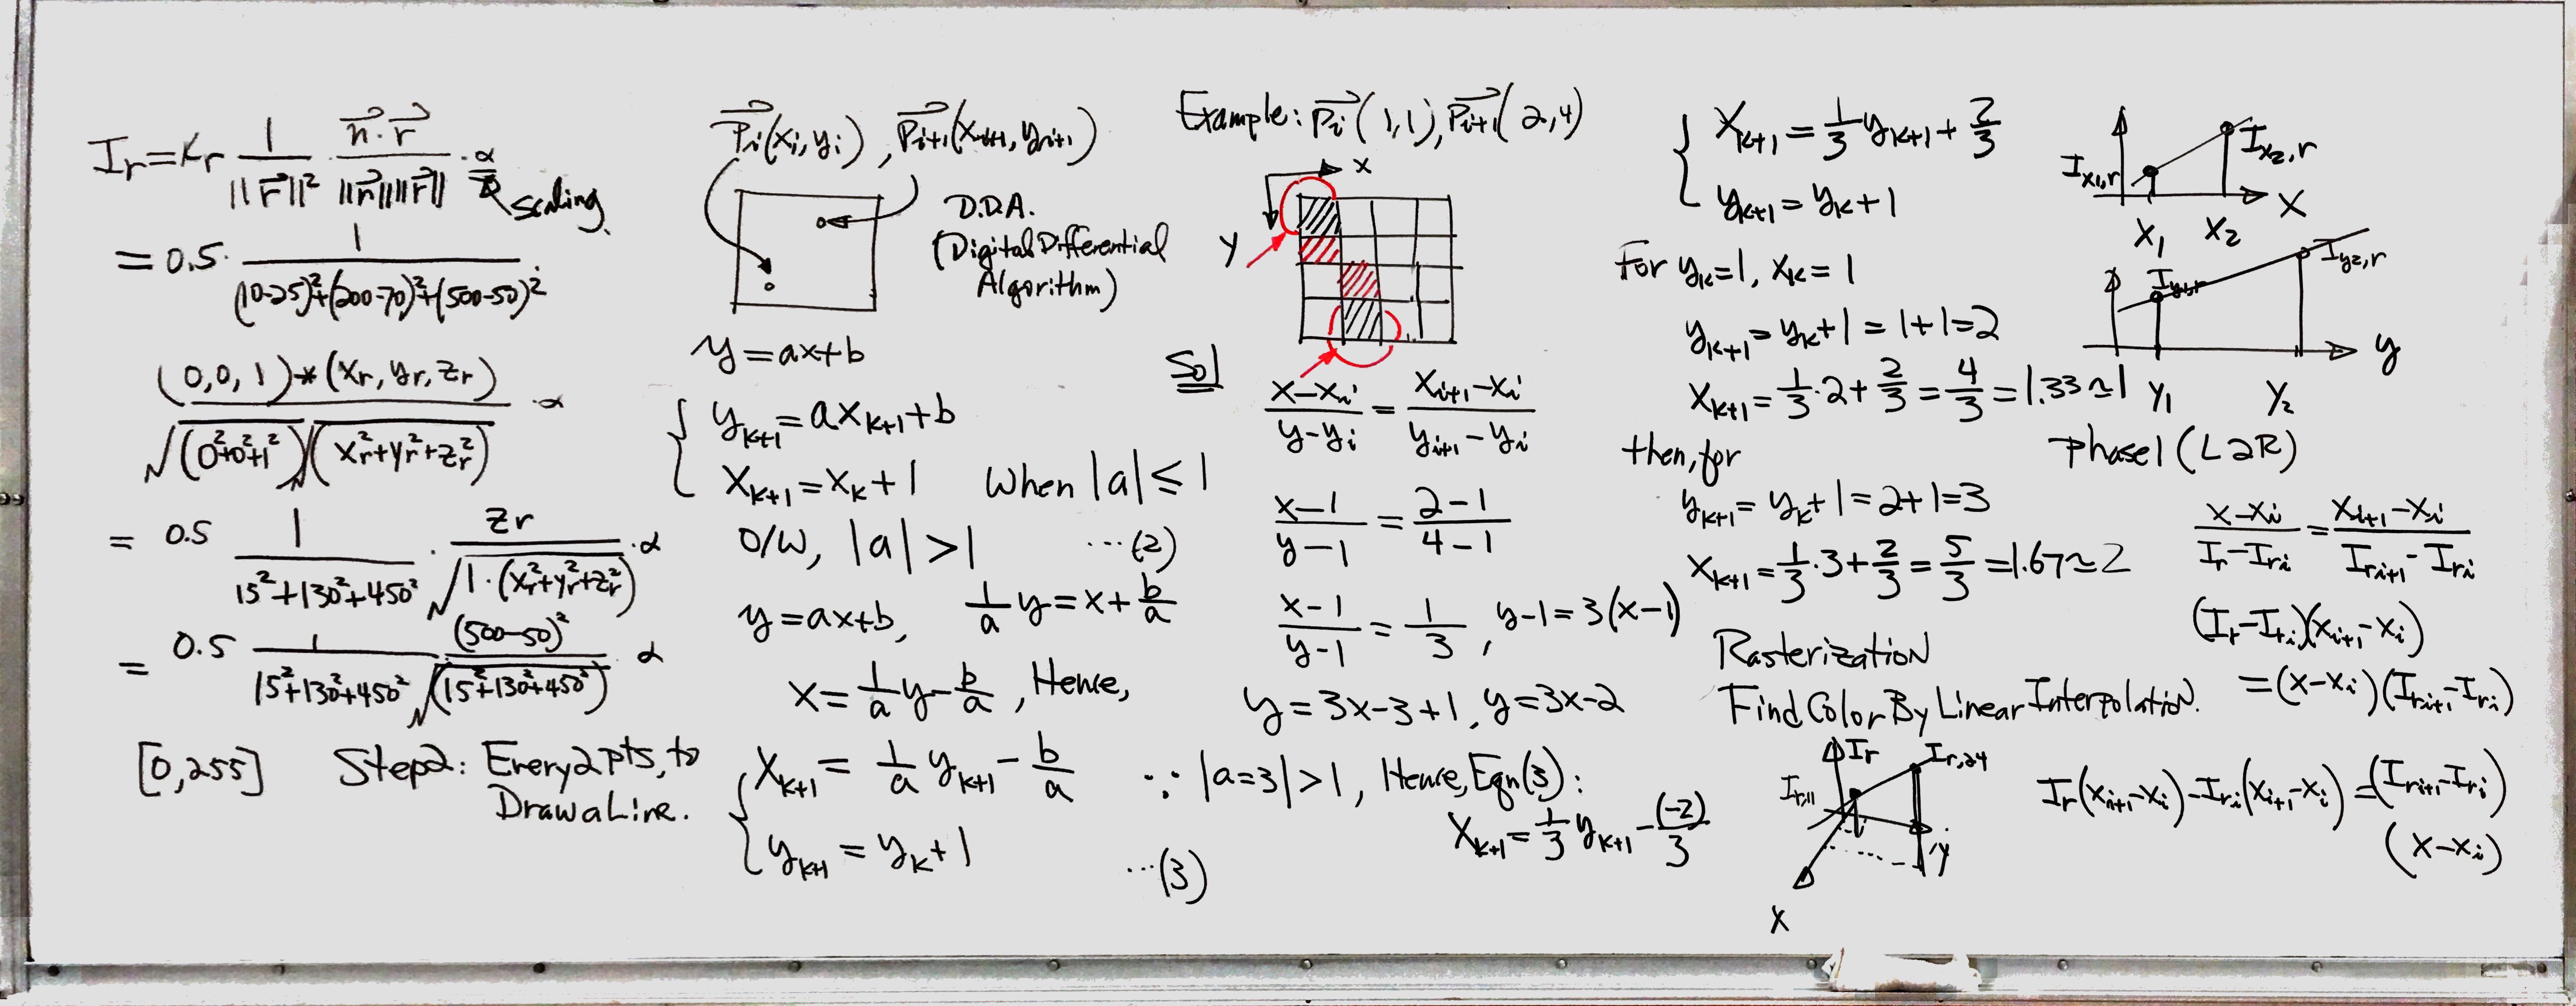 Ir = Kr 1/||r⃗||² · n⃗·r⃗/||n⃗||||r⃗|| · α
scaling
= 0.5 · 1/(10-25)²+(200-70)²+(500-50)² ·
(0,0,1)*(xr, yr, zr)/√(0²+0²+1²)√(xr²+yr²+zr²) · α
= 0.5 1/15²+130²+450² · zr/√1·(xr²+yr²+zr²) · α
= 0.5 1/15²+130²+450² (500-50)²/√(15²+130²+450²) α
[0,255] Step2: Every2pts, to
Draw a Line.
P⃗i(xi, yi), P⃗i+1(xi+1, yi+1)
D.D.A.
(Digital Differential
Algorithm)
y = ax+b
{ yk+1 = axk+1+b
xk+1 = xk+1 When |a| ≤ 1
O/W, |a| > 1 ...(2)
y = ax+b, 1/a y = x + b/a
x = 1/a y - b/a, Hence,
{ xk+1 = 1/a yk+1 - b/a
yk+1 = yk+1
...(3)
Example: P⃗i(1,1), P⃗i+1(2,4)
x
y
Sol
x-xi/y-yi = xi+1-xi/yi+1-yi
x-1/y-1 = 2-1/4-1
x-1/y-1 = 1/3, y-1=3(x-1)
y=3x-3+1, y=3x-2
∵ |a=3|>1, Hence, Eqn(3):
xk+1 = 1/3 yk+1 - (-2)/3
{ xk+1 = 1/3 yk+1 + 2/3
yk+1 = yk+1
For yk=1, xk=1
yk+1 = yk+1 = 1+1=2
xk+1 = 1/3·2+2/3 = 4/3 = 1.33≃1
then, for
yk+1 = yk+1 = 2+1=3
xk+1 = 1/3·3+2/3 = 5/3 = 1.67≃2
Rasterization
Find Color By Linear Interpolation.
Ir
Ir,24
Ir,11
y
x
Ix1,r
Ix2,r
x
x1 x2
Iy1,r
Iy2,r
y
y1 y2
phase1 (L2R)
x-xi/Ir-Iri = xi+1-xi/Iri+1-Iri
(Ir-Iri)(xi+1-xi)
=(x-xi)(Iri+1-Iri)
Ir(xi+1-xi)-Iri(xi+1-xi)=(Iri+1-Iri)
(x-xi)